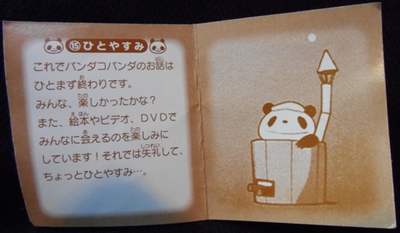 ⑮ひとやすみ
これでパンダコパンダのお話は
ひとまず終わりです。
みんな、楽しかったかな？
また、絵本やビデオ、DVDで
みんなに会えるのを楽しみに
しています！それでは失礼して、
ちょっとひとやすみ…。